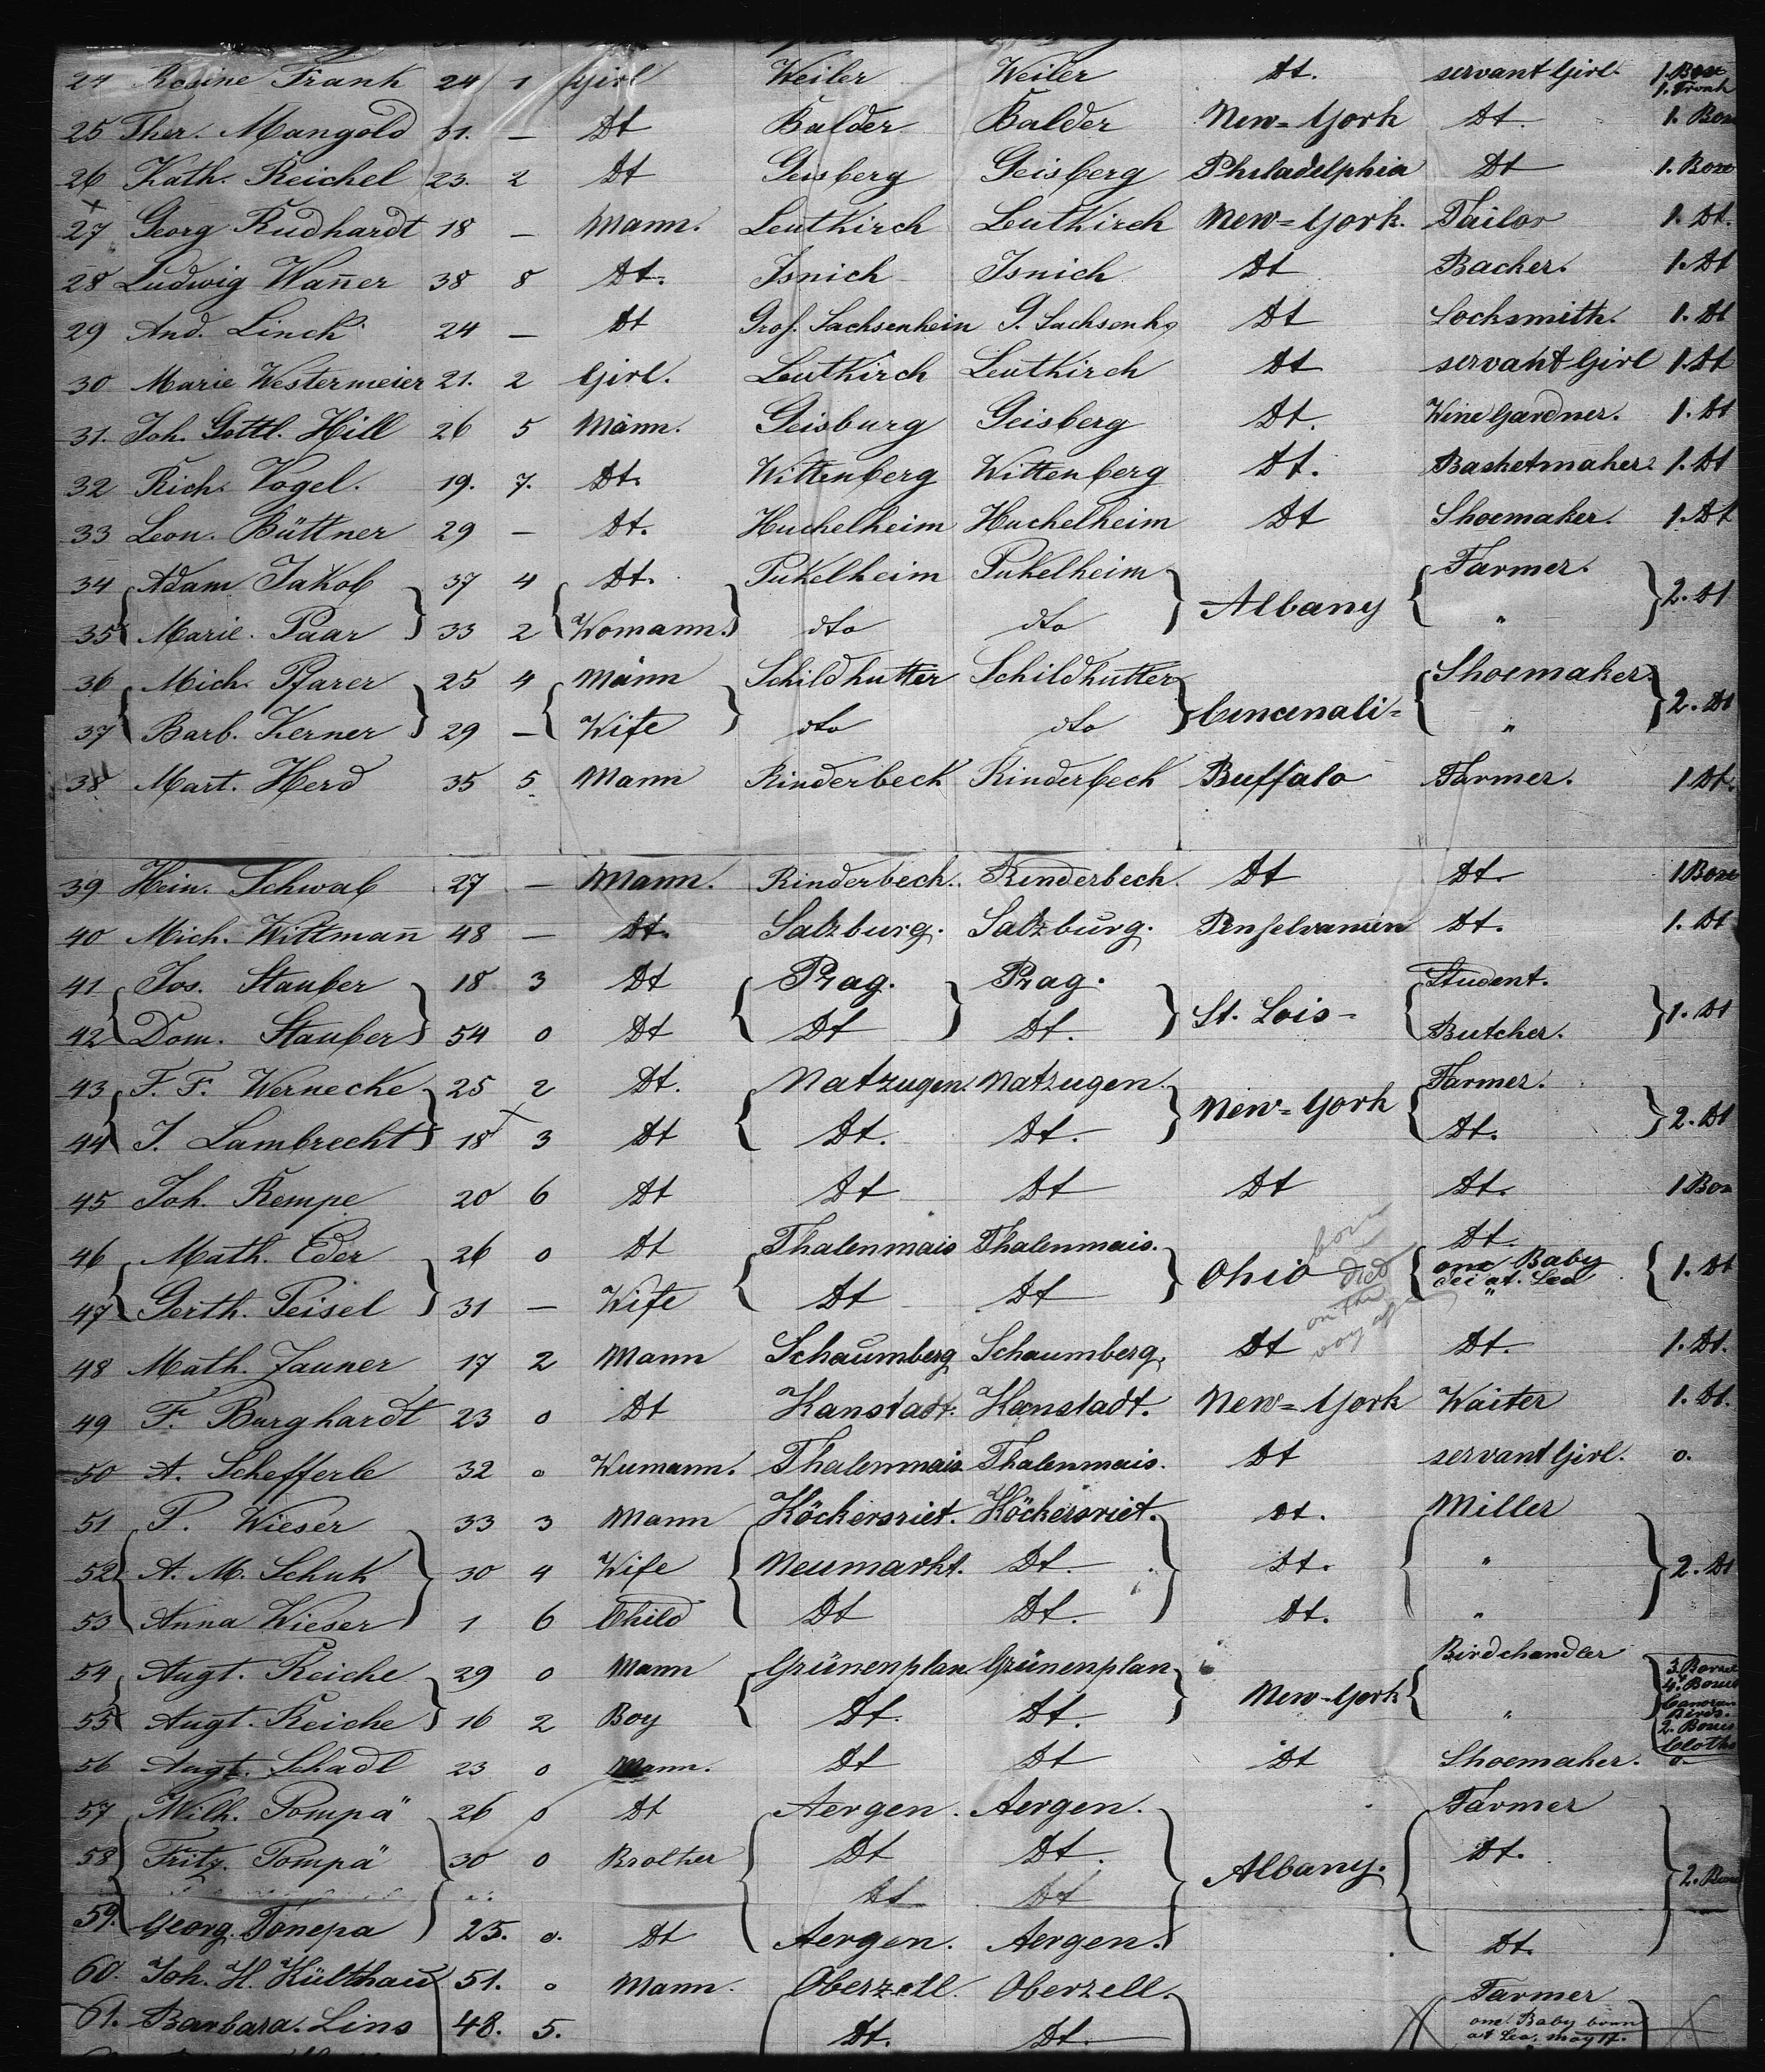 24 Rosine Frank 24 1 Girl Weiler Weiler Dt. servant Girl. 1. Box
25 Ther. Mangold 31. — Dt Balder Balder New=York Dt. 1. Box
26 Kath. Reichel 23. 2 Dt Geisberg Geisberg Philadelphia Dt 1. Box
27 Georg Rudhardt 18 — Mann. Leutkirch Leutkirch New=York. Tailor 1. Dt.
28 Ludwig Wan̄er 38 8 Dt. Isnich Isnich Dt Backer. 1. Dt
29 And. Linck 24 — Dt Grof. Sachsenhein G. Sachsenh. Dt Locksmith. 1. Dt
30 Marie Westermeier 21. 2 Girl. Leutkirch Leutkirch Dt servant Girl 1. Dt
31. Joh. Gottl. Hill 26 5 Mann. Geisburg Geisberg Dt. Wine Gardner. 1. Dt
32 Rich. Vogel. 19. 7. Dt. Wittenberg Wittenberg Dt. Basketmaker. 1. Dt
33 Leon. Büttner 29 — Dt. Huchelheim Huchelheim Dt Shoemaker. 1. Dt
34 Adam Jakob 37 4 Dt. Pukelheim Pukelheim Farmer.
35 Marie. Paar 33 2 Womann. dto dto Albany " 2. Dt
36 Mich. Pfarer 25 4 Mann Schildhutter Schildhutter Shoemaker.
37 Barb. Kerner 29 — Wife dto dto Cincinali= " 2. Dt
38 Mart. Herd 35 5 Mann Rinderbeck Rinderbeck Buffalo Farmer. 1 Dt.
39 Hein. Schwab 27 — Mann. Rinderbech. Rinderbech. Dt Dt. 1 Box
40 Mich. Wittman̄ 48 — Dt. Salzburg. Salzburg. Dt. 1. Dt
41 Jos. Stauber 18 3 Dt Prag. Prag. Student.
42 Dom. Stauber 54 0 Dt Dt Dt. St. Lois= Butcher. 1. Dt
43 F. F. Wernecke 25 2 Dt. Natzugen. Natzugen. Farmer.
44 J. Lambrecht 18 3 Dt Dt. Dt. New=York Dt. 2. Dt
45 Joh. Rempe 20 6 Dt Dt Dt Dt Dt. 1 Box
46 Math. Eder 26 0 Dt Thalenmais Thalenmais. born Dt.
47 Gerth. Peisel 31 — Wife Dt Dt Ohio died on the voy one Baby at Sea " 1. Dt
48 Math. Jauner 17 2 Mann Schaumberg Schaumberg. Dt Dt. 1. Dt.
49 F. Burghardt 23 0 Dt Kanstadt. Kanstadt. New=York Waiter 1. Dt.
50 A. Schefferle 32 0 Wumann. Thalenmais Thalenmais. Dt servant Girl. 0.
51 P. Wieser 33 3 Mann Köckersriet. Köckersriet. Dt. Miller
52 A. M. Schuk 30 4 Wife Neumarkt. Dt. Dt. " 2. Dt
53 Anna Wieser 1 6 Child Dt Dt. Dt. "
54 Augt. Reiche 29 0 Mann Grünenplan Grünenplan Birdchandler
55 Augt. Reiche 16 2 Boy Dt. Dt. New-York " Birds. 2.
56 Augt. Schadl 23 0 Mann. Dt Dt Dt Shoemaker. 0
57 Wilh. Pompä 26 0 Dt Aergen. Aergen. Farmer
58 Fritz. Pompä 30 0 Brolher Dt Dt. Albany. Dt. 2.
Dt Dt
59. Georg. 25. 0. Dt Aergen. Aergen. Dt.
60. Joh. H. Külthau 51. 0 Mann. Oberzell. Oberzell. Farmer
61. Barbara. Lins 48. 5. Dt. Dt. one. Baby born
at Sea. may 17.